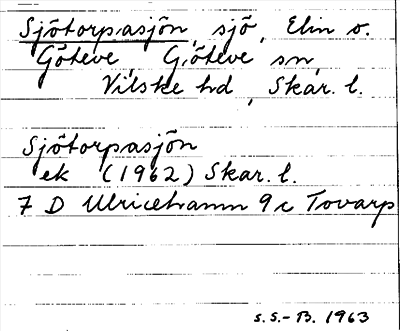 Sjötorpasjön, sjö, Elin o.
Göteve, Göteve sn,
Vilske hd, Skar. l.
Sjötorpasjön
ek (1962) Skar. l.
7 D Ulricehamn 9 c Tovarp
S.S.-B. 1963